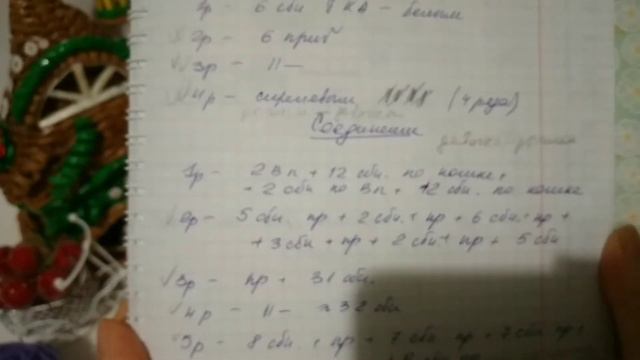 1р – 6 сбн в КА – белым
2р – 6 приб
3р – 11 –
4р – сиреневым (4 ряда)
Соединение
1р – 2 вп + 12 сбн. по ножке +
+ 2 сбн по вп + 12 сбн. по ножке
2р – 5 сбн. пр + 2 сбн. + пр + 6 сбн. + пр +
+ 3 сбн + пр + 2 сбн + пр + 5 сбн
3р – пр + 31 сбн.
4р – 11 – 32 сбн
5р – 8 сбн. + пр + 7 сбн. пр + 7 сбн пр +